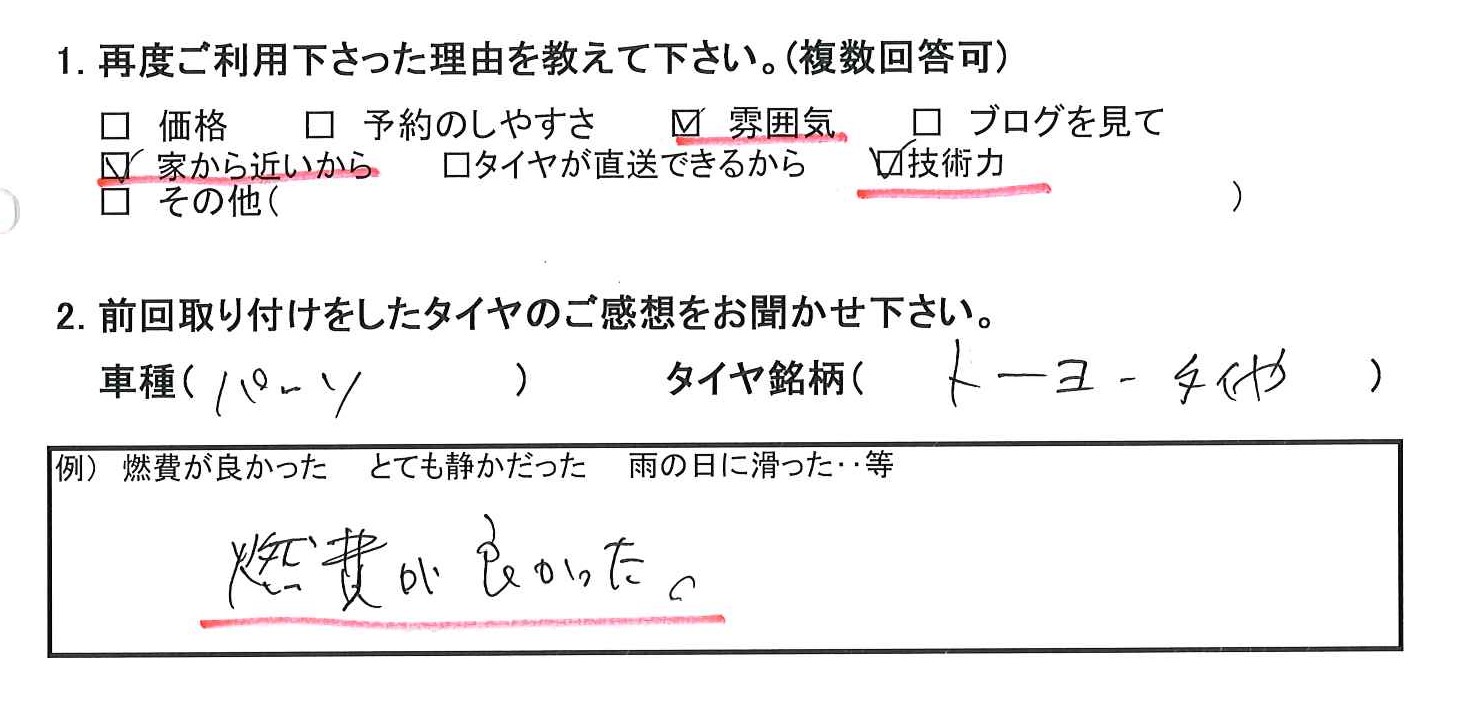 1. 再度ご利用下さった理由を教えて下さい。(複数回答可)
□ 価格 □ 予約のしやすさ ☑ 雰囲気 □ ブログを見て
☑ 家から近いから □タイヤが直送できるから ☑技術力
□ その他( )
2. 前回取り付けをしたタイヤのご感想をお聞かせ下さい。
車種( パーソ ) タイヤ銘柄( トーヨータイヤ )
例) 燃費が良かった とても静かだった 雨の日に滑った‥等
燃費が良かった。